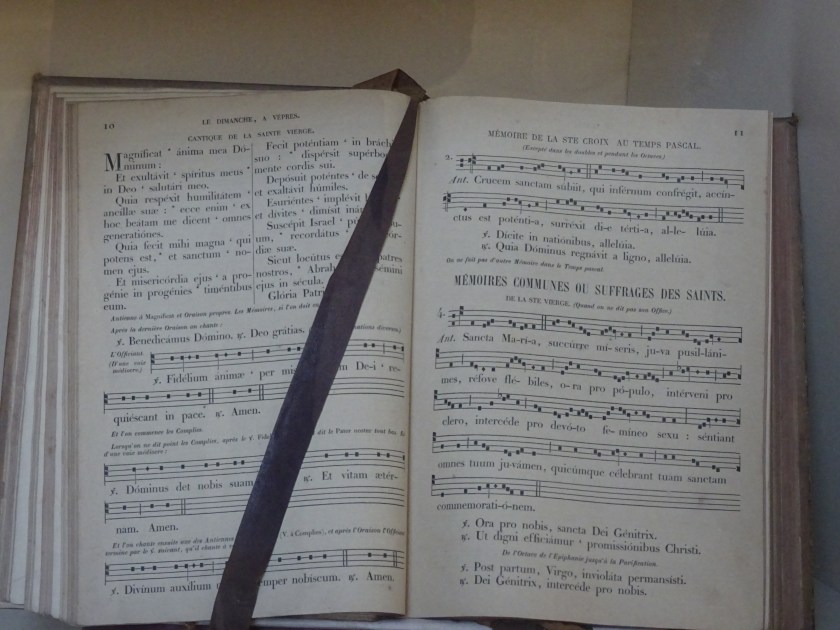 10
LE DIMANCHE, A VÊPRES.
CANTIQUE DE LA SAINTE VIERGE.
Magnificat * ánima mea Dó-
minum :
Et exultávit * spíritus meus *
in Deo * salutári meo.
Quia respéxit humilitátem *
ancíllæ suæ : * ecce enim * ex
hoc beátam me dicent * omnes
generatiónes.
Quia fecit mihi magna * qui
potens est, * et sanctum * no-
men ejus.
Et misericórdia ejus * a pro-
génie in progénies * timéntibus
eum.
Fecit poténtiam * in brách
suo : * dispérsit supérbo
mente cordis sui.
Depósuit poténtes * de s
et exaltávit húmiles.
Esuriéntes * implévit b
et dívites * dimísit iná
Suscépit Israel * pú
um, * recordátus * ór-
diæ suæ.
Sicut locútus es patres
nostros, * Abrah sémini
ejus in sécula.
Glória Patri
Antienne à Magnificat et Oraison propres. Les Mémoires, s'il en doit
Après la dernière Oraison on chante :
℣. Benedicámus Dómino. ℟. Deo grátias.
L'Officiant.
(D'une voix
médiocre.)
℣. Fidélium ánimæ * per mi m De-i * re-
quiéscant in pace. ℟. Amen.
Et l'on commence les Complies.
Lorsqu'on ne dit point les Complies, après le ℣. Fidél dit le Pater noster tout bas.
d'une voix médiocre :
℣. Dóminus det nobis suam ℟. Et vitam ætér-
nam. Amen.
Et l'on chante ensuite une des Antiennes (V. à Complies), et après l'Oraison l'Officiant
termine par le ℣. suivant, qu'il chante
℣. Divínum auxílium emper nobíscum. ℟. Amen.
11
MÉMOIRE DE LA STE CROIX AU TEMPS PASCAL.
(Excepté dans les doubles et pendant les Octaves.)
2.
Ant. Crucem sanctam súbiit, qui inférnum confrégit, accín-
ctus est poténti-a, surréxit di-e térti-a, al-le- lúia.
℣. Dícite in natiónibus, allelúia.
℟. Quia Dóminus regnávit a ligno, allelúia.
On ne fait pas d'autre Mémoire dans le Temps pascal.
MÉMOIRES COMMUNES OU SUFFRAGES DES SAINTS.
DE LA STE VIERGE. (Quand on ne dit pas son Office.)
4.
Ant. Sancta Ma-rí-a, succúrre mí-seris, ju-va pusil-láni-
mes, réfove flé-biles, o-ra pro pó-pulo, intérveni pro
clero, intercéde pro devó-to fe-míneo sexu : séntiant
omnes tuum ju-vámen, quicúmque célebrant tuam sanctam
commemorati-ó-nem.
℣. Ora pro nobis, sancta Dei Génitrix.
℟. Ut digni efficiámur * promissiónibus Christi.
De l'Octave de l'Epiphanie jusqu'à la Purification.
℣. Post partum, Virgo, invioláta permansísti.
℟. Dei Génitrix, intercéde pro nobis.